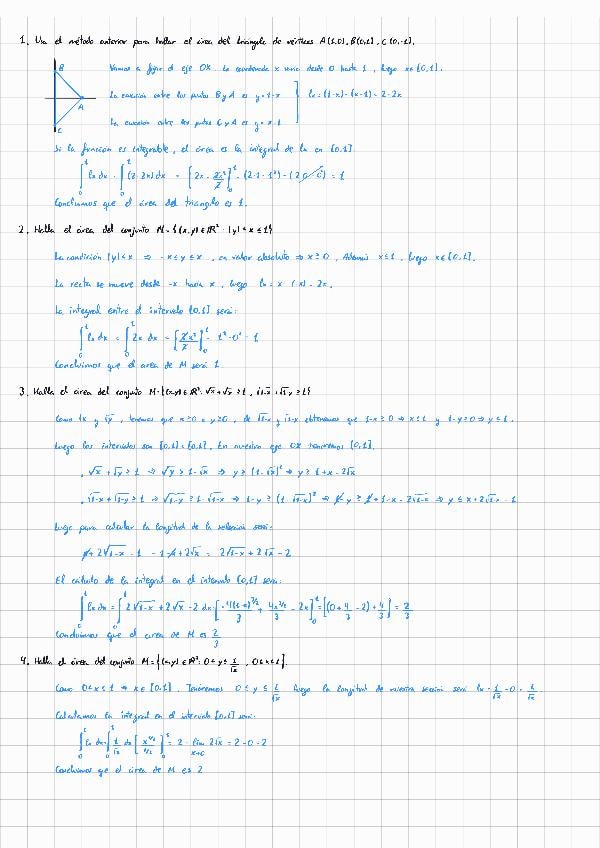 1. Usa el método anterior para hallar el área del triángulo de vértices A(1,0), B(0,1), C(0,-1).
B
A
C
Vamos a fijar el eje OX. La coordenada x varía desde 0 hasta 1, luego x∈[0,1].
La ecuación entre los puntos B y A es y = 1-x
lx = (1-x) - (x-1) = 2-2x
La ecuación entre los puntos C y A es y = x-1
Si la función es integrable, el área es la integral de lx en [0,1]
∫₀¹ lx dx = ∫₀¹ (2-2x) dx = [2x - 2x²/2]₀¹ = (2·1-1²) - (2·0-0) = 1
Concluimos que el área del triángulo es 1.
2. Halla el área del conjunto M = {(x,y)∈ℝ² : |y| < x ≤ 1}
La condición |y| < x ⇒ -x ≤ y ≤ x, en valor absoluto ⇒ x ≥ 0, Además x ≤ 1, luego x∈[0,1].
La recta se mueve desde -x hasta x, luego lx = x-(-x) = 2x.
La integral entre el intervalo [0,1] será:
∫₀¹ lx dx = ∫₀¹ 2x dx = [2x²/2]₀¹ = 1² - 0² = 1
Concluimos que el area de M será 1
3. Halla el área del conjunto M = {(x,y)∈ℝ² : √x + √y ≥ 1, √1-x + √1-y ≥ 1}
Como √x y √y, tenemos que x ≥ 0 e y ≥ 0, de √1-y y √1-x obtenemos que 1-x ≥ 0 ⇒ x ≤ 1 y 1-y ≥ 0 ⇒ y ≤ 1.
Luego los intervalos son [0,1]×[0,1]. En nuestro eje OX tenemos [0,1].
. √x + √y ≥ 1 ⇒ √y ≥ 1-√x ⇒ y ≥ (1-√x)² ⇒ y ≥ 1+x-2√x
. √1-x + √1-y ≥ 1 ⇒ √1-y ≥ 1-√1-x ⇒ 1-y ≥ (1-√1-x)² ⇒ 1-y ≥ 1+1-x-2√1-x ⇒ y ≤ x+2√1-x - 1
Luego para calcular la longitud de la sección será:
x + 2√1-x - 1 - 1 - x + 2√x = 2√1-x + 2√x - 2
El cálculo de la integral en el intervalo [0,1] será:
∫₀¹ lx dx = ∫₀¹ 2√1-x + 2√x - 2 dx = [-4(1-x)^3/2 / 3 + 4x^3/2 / 3 - 2x]₀¹ = [(0 + 4/3 - 2) + 4/3] = 2/3
Concluimos que el area de M es 2/3
4. Halla el área del conjunto M = {(x,y)∈ℝ² : 0 ≤ y ≤ 1/√x, 0 < x ≤ 1}.
Como 0 < x ≤ 1 ⇒ x∈[0,1]. Tenemos 0 ≤ y ≤ 1/√x luego la longitud de nuestra sección será lx = 1/√x - 0 = 1/√x
Calculamos la integral en el intervalo [0,1] será:
∫₀¹ lx dx = ∫₀¹ 1/√x dx [x^1/2 / 1/2]₀¹ = 2 - lim x→0 2√x = 2-0 = 2
Concluimos que el área de M es 2